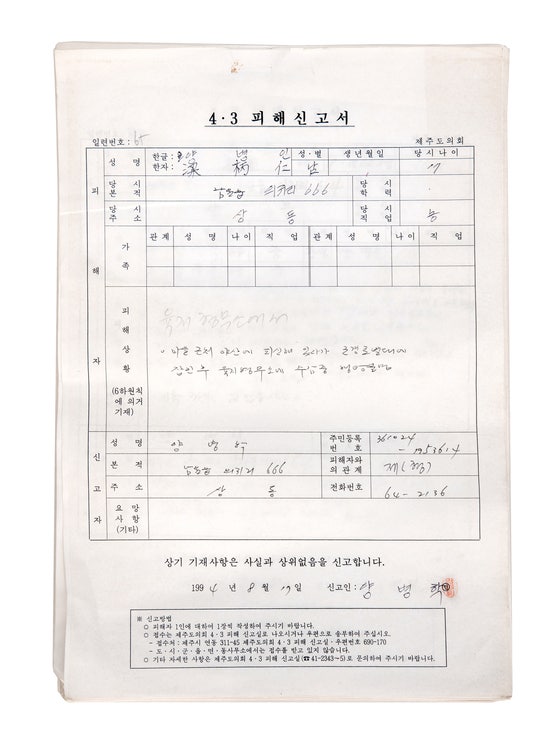 4·3 피해신고서
일련번호: 65
제주도의회
피해자
성 명
한글: 양 병 인
한자: 梁 柄 仁
성·별
남
생년월일
당시나이
당시본적
남원읍 의귀리 666
당시학력
당시주소
상 동
당시직업
농
가족
관계 성 명 나이 직 업 관계 성 명 나이 직 업
피해상황
(6하원칙에 의거 기재)
육지 형무소에서
· 마을 근처 야산에 피신해 있다가 군경토벌대에
잡힌 후 육지형무소에 수감중 행방불명
신고자
성 명
양 병
주민등록번호
본 적
남원읍 의귀리 666
피해자와의 관계
제(형)
주 소
상 동
전화번호
64-2136
요망사항
(기타)
상기 기재사항은 사실과 상위없음을 신고합니다.
1994 년 8 월 19 일 신고인: 양 병
※ 신고방법
○ 피해자 1인에 대하여 1장씩 작성하여 주시기 바랍니다.
○ 접수는 제주도의회 4·3 피해 신고실로 나오시거나 우편으로 송부하여 주십시오.
- 접수처 : 제주시 연동 311-45 제주도의회 4·3 피해 신고실·우편번호 690-170
- 도·시·군·읍·면·동사무소에서는 접수를 받고 있지 않습니다.
○ 기타 자세한 사항은 제주도의회 4·3 피해 신고실(☎41-2343~5)로 문의하여 주시기 바랍니다.